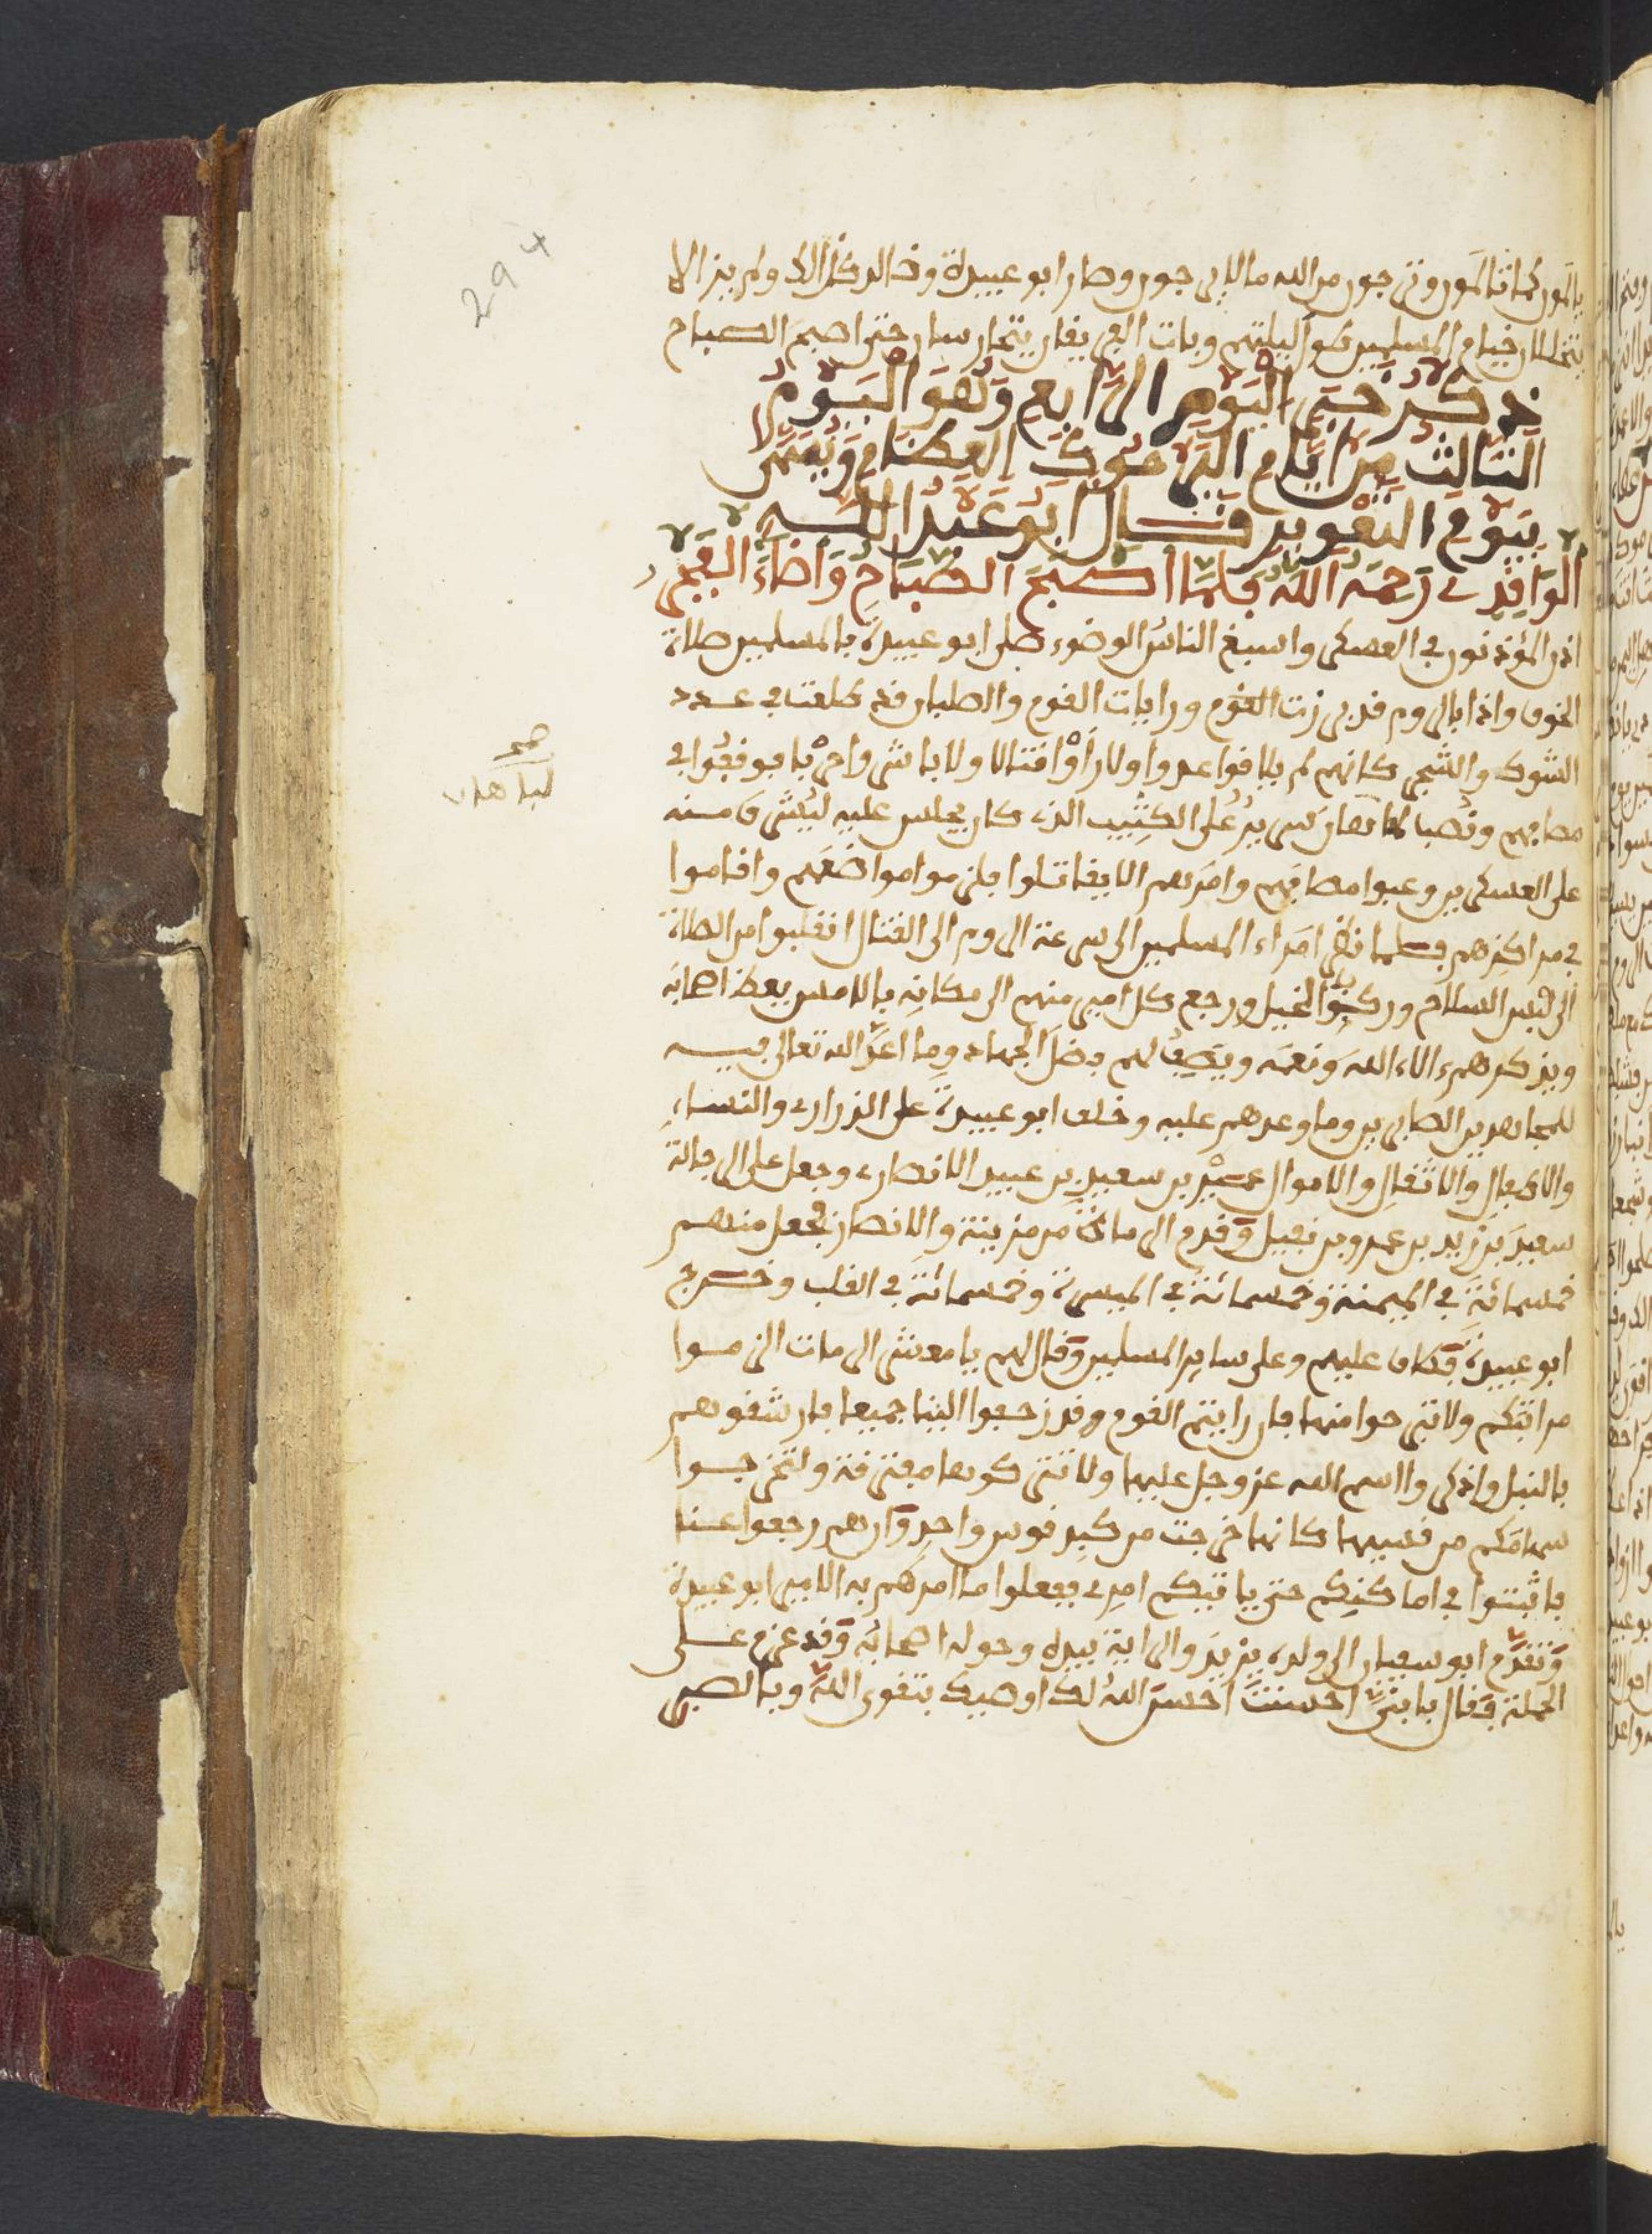 294
تالمون كما تالمون وترجون من الله ما لا يرجون وصار ابو عبيدة وخالد كذالك ولم يزالا
يتخللان خيام المسلمين طول ليلتهم وبات الفريقان يتحارسان حتى اصبح الصباح
ذكر خبر اليوم الرابع وهو اليوم
الثالث من ايام اليرموك العظام ويسمى
بيوم التعوير قال ابو عبد الله
الواقدي رحمه الله فلما اصبح الصباح واضاء الفجر
اذن المؤذنون في العسكر واسبغ الناس الوضوء صلى ابو عبيدة بالمسلمين صلاة
الخوف واذا بالروم قد برزت القوم ورايات القوم والصلبان قد طلعت في عدد
الشوك والشجر كانهم لم يلاقوا عدوا ولا راوا قتالا ولا باشروا حربا فوقفوا في
مصافهم ونصب لماهان سرير على الكثيب الذي كان يجلس عليه ليشرف منه
صح
لباهان
على العسكرين وعبوا مصافهم وامرهم الا يقاتلوا فلزموا مواضعهم واقاموا
في مراكزهم فلما نظر امراء المسلمين الى سرعة الروم الى القتال انقلبوا من الصلاة
الى لبس السلاح وركبوا الخيل ورجع كل امير منهم الى مكانه بالامس يعظ اصحابه
ويذكرهم الاء الله ونعمه ويصف لهم فضل الجهاد وما اعد الله تعالى فيه
للمجاهدين الصابرين وما وعدهم عليه وخلف ابو عبيدة على الذراري والنساء
والارحال والاثقال والاموال عمير بن سعيد بن عبيد الانصاري وجعل على الرجالة
سعيد بن زيد بن عمرو بن نفيل وقدم الرماة من مزينة والانصار فجعل منهم
خمسمائة في الميمنة وخمسمائة في الميسرة وخمسمائة في القلب وخرج
ابو عبيدة فطاف عليهم وعلى ساير المسلمين وقال لهم يا معشر الرماة الزموا
مراتبكم ولا تبرحوا منها فان رايتم القوم وقد زحفوا الينا جميعا فارشقوهم
بالنبل واذكروا اسم الله عز وجل عليها ولا تتركوها مفترقة ولتخرجوا
سهامكم من قسيها كانها خرجت من كبد قوس واحد وان هم رجعوا عنا
فاثبتوا في اماكنكم حتى ياتيكم امري ففعلوا ما امرهم به الامير ابو عبيدة
وتقدم ابو سفيان الى ولده يزيد والراية بيده وحوله اصحابه وقد عزم على
الحملة فقال يا بني احسنت احسن الله لك اوصيك بتقوى الله وبالصبر